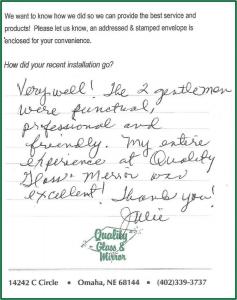 We want to know how we did so we can provide the best service and
products! Please let us know, an addressed & stamped envelope is
enclosed for your convenience.
How did your recent installation go?
Very well! The 2 gentlemen
were punctual,
professional and
friendly. My entire
experience at Quality
Glass & Mirror was
excellent! Thank you!
Julie
Quality
Glass &
Mirror
14242 C Circle • Omaha, NE 68144 • (402)339-3737